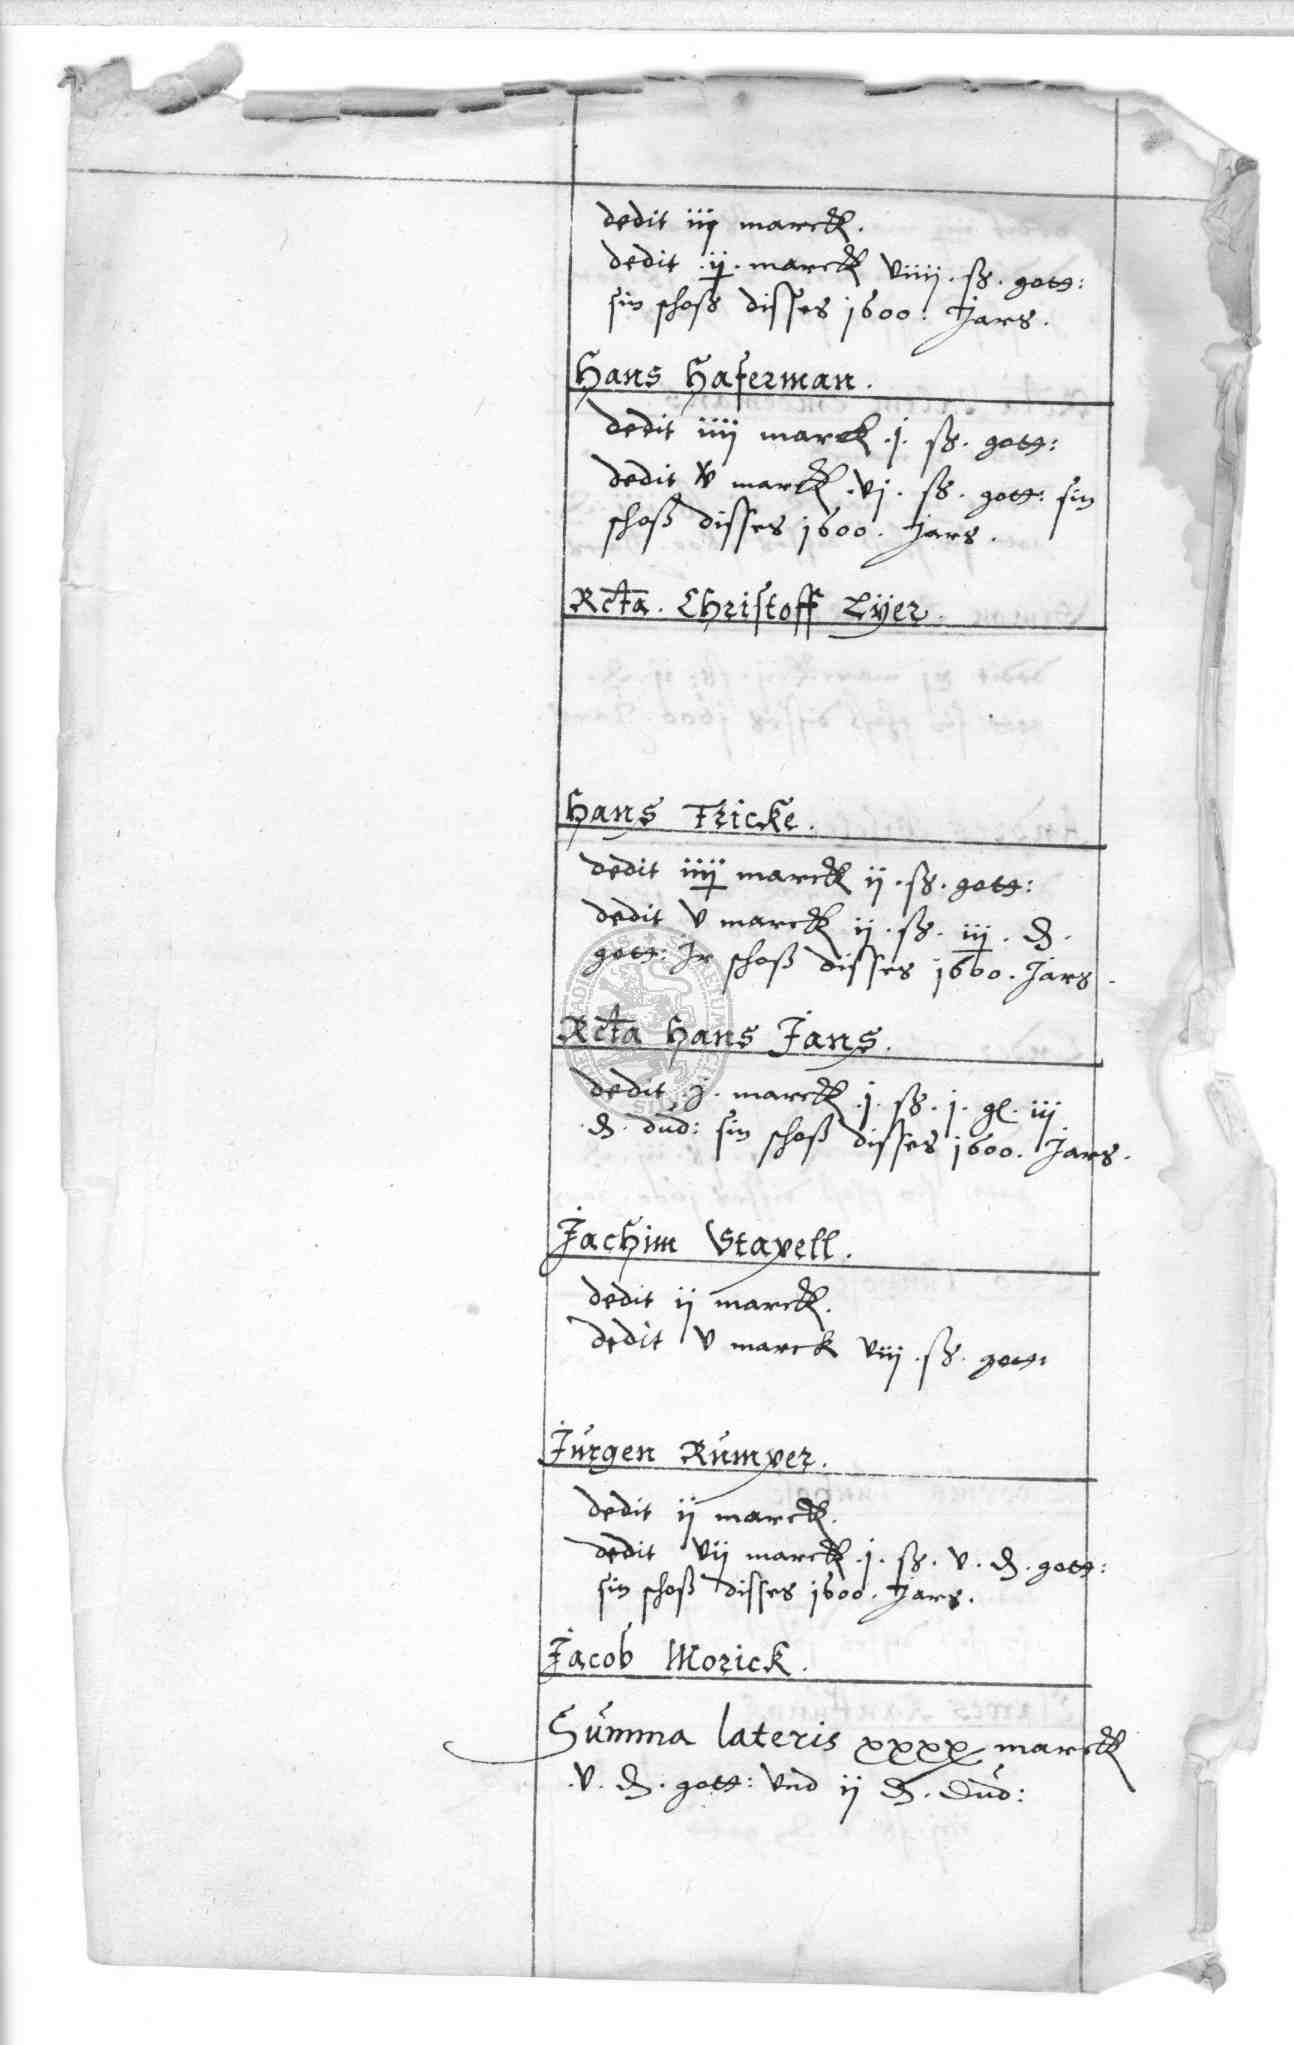 dedit iij marck.
dedit .ij. marck viiij. ß. gott:
sin schoß disses 1600. Jars.
Hans Haferman.
dedit iiij marck .j. ß. gott:
dedit v marck .vj. ß. gott: sin
schoß disses 1600. Jars.
Rcta. Christoff Lÿer.
Hans Fricke.
dedit iiij marck ij .ß. gott:
dedit v marck ij .ß. iij . ₰.
gott: Jr schoß disses 1600. Jars.
Rcta Hans Jans.
dedit .j. marck .j. ß. j. gl. iij
.₰. dud: sin schoß disses 1600. Jars.
Jachim Stapell.
dedit ij marck.
dedit v marck viij .ß. gott:
Jurgen Rumper.
dedit ij marck.
dedit vij marck .j. ß. v. ₰. gott:
sin schoß disses 1600. Jars.
Jacob Morick.
Summa lateris xxxx marck
.v. ₰. gott: vnd ij ₰. dud: